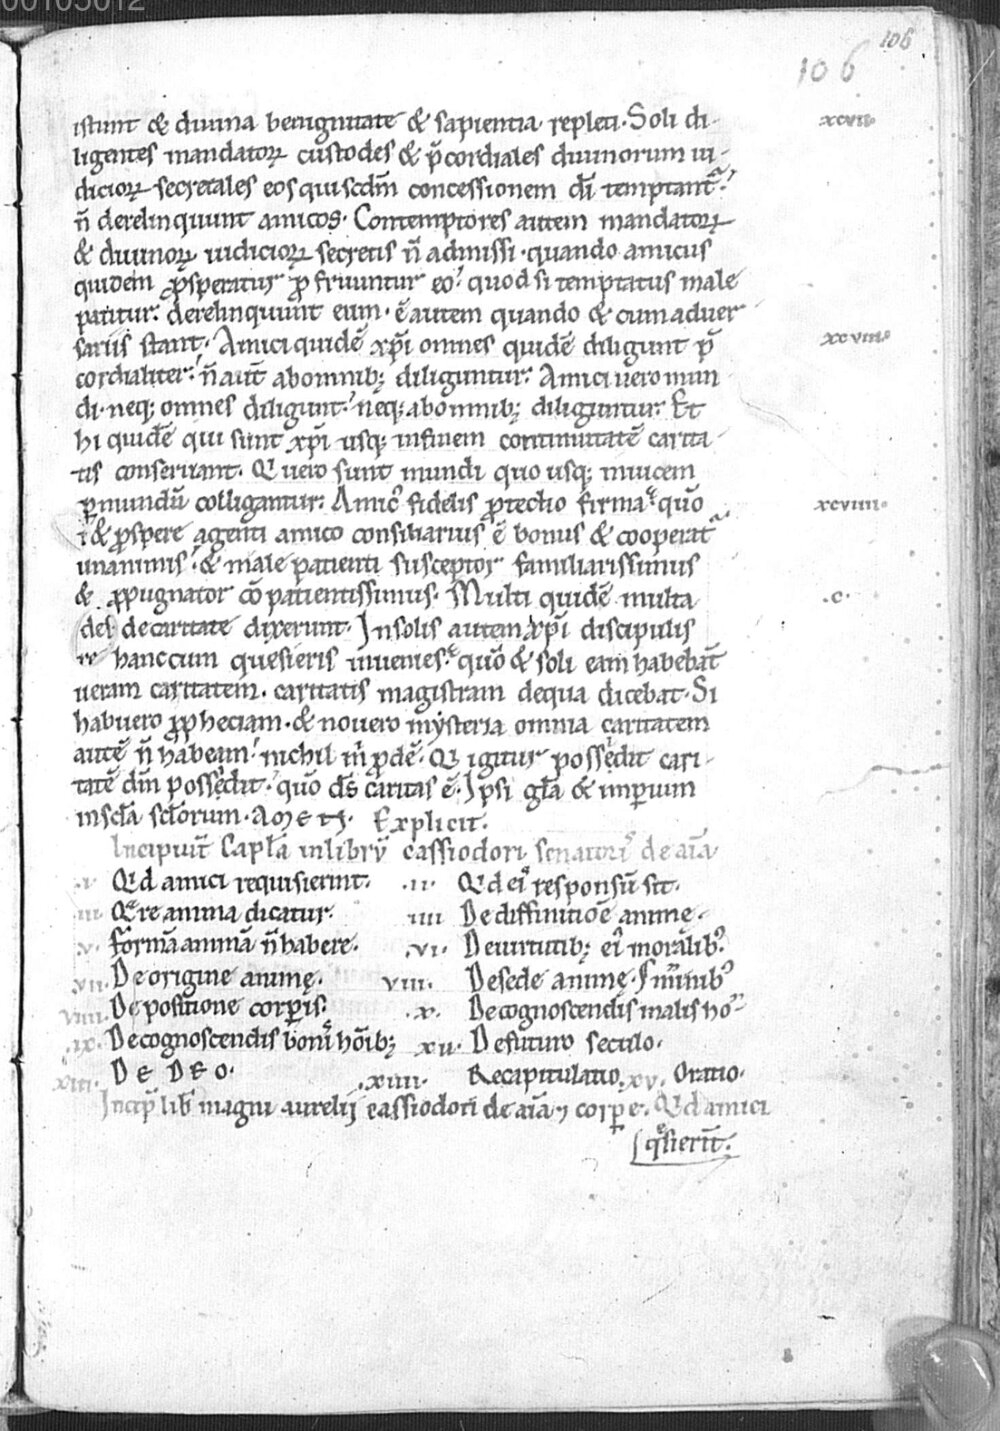 00105012
106
106
istunt & diuina benignitate & sapientia repleti. Soli di- xcvii.
ligentes mandatoꝝ custodes & p̄cordiales diuinorum iu-
dicioꝝ secretales eos qui scdm̄ concessionem dī temptant᷑.
n̄ derelinquunt amicos. Contemptores autem mandatoꝝ
& diuinoꝝ iudicioꝝ secretis n̄ admissi. quando amicus
quidem ꝓsperatur ꝓ fruuntur eo. quod si temptatus male
patitur. derelinquunt eum. ē autem quando & cum aduer
sariis stant. Amici quidē xp̄i omnes quidē diligunt p̄ xcviii.
cordialiter. n̄ aut̄ ab omnibꝫ diliguntur. Amici uero mun
di. neqꝫ omnes diligunt. neqꝫ ab omnibꝫ diliguntur. Et
hi quidē qui sunt xp̄i usqꝫ in finem continuitatē carita-
tis conseruant. Qi uero sunt mundi quo usqꝫ inuicem
ꝑ mundū colligantur. Amicꝰ fidelis ꝓtectio firma. quō xcviiii.
i & ꝓspere agenti amico consiliarius ē bonus & cooperat᷑
unanimis. & male patienti susceptor familiarissimus
& ꝓpugnator cō patientissimus. Multi quidē multa .c.
des de caritate dixerunt. In solis autem xp̄i discipulis
re hanc cum quesieris inuenies. quō & soli eam habebāt
ueram caritatem. caritatis magistram de qua dicebat. Si
habuero ꝓpheciam. & nouero mysteria omnia caritatem
autē n̄ habeam. nichil m̄ ꝓdē. Qi igitur possedit cari-
tatē dm̄ possedit. quō ds̄ caritas ē. Ipsi gl̄a & imperium
in sc̄la sc̄lorum. AMEN. Explicit.
Incipiūt Capl̄a in librū cassiodori senatorꝰ de aīa
.i. Qd amici requisierint. .ii. Qd eiꝰ responsū sit.
.iii. Qͣre anima dicatur. iiii De diffinitiōe anime.
.v. formā animā n̄ habere. .vi. De uirtutibꝫ eiꝰ moralibꝰ.
.vii. De origine animę. viii. De sede animę.
viiii. De positione corꝑis. .x. De cognoscendis malis ho
.ix. De cognoscendis bonis hōibꝫ xii. De futuro seculo.
xiii. DE DEO. .xiiii. Recapitulatio. xv. Oratio.
Incip̄ lib̄ magni aurelii cassiodori de aīa ⁊ corꝑe. Qd amici
qͥsierūt.